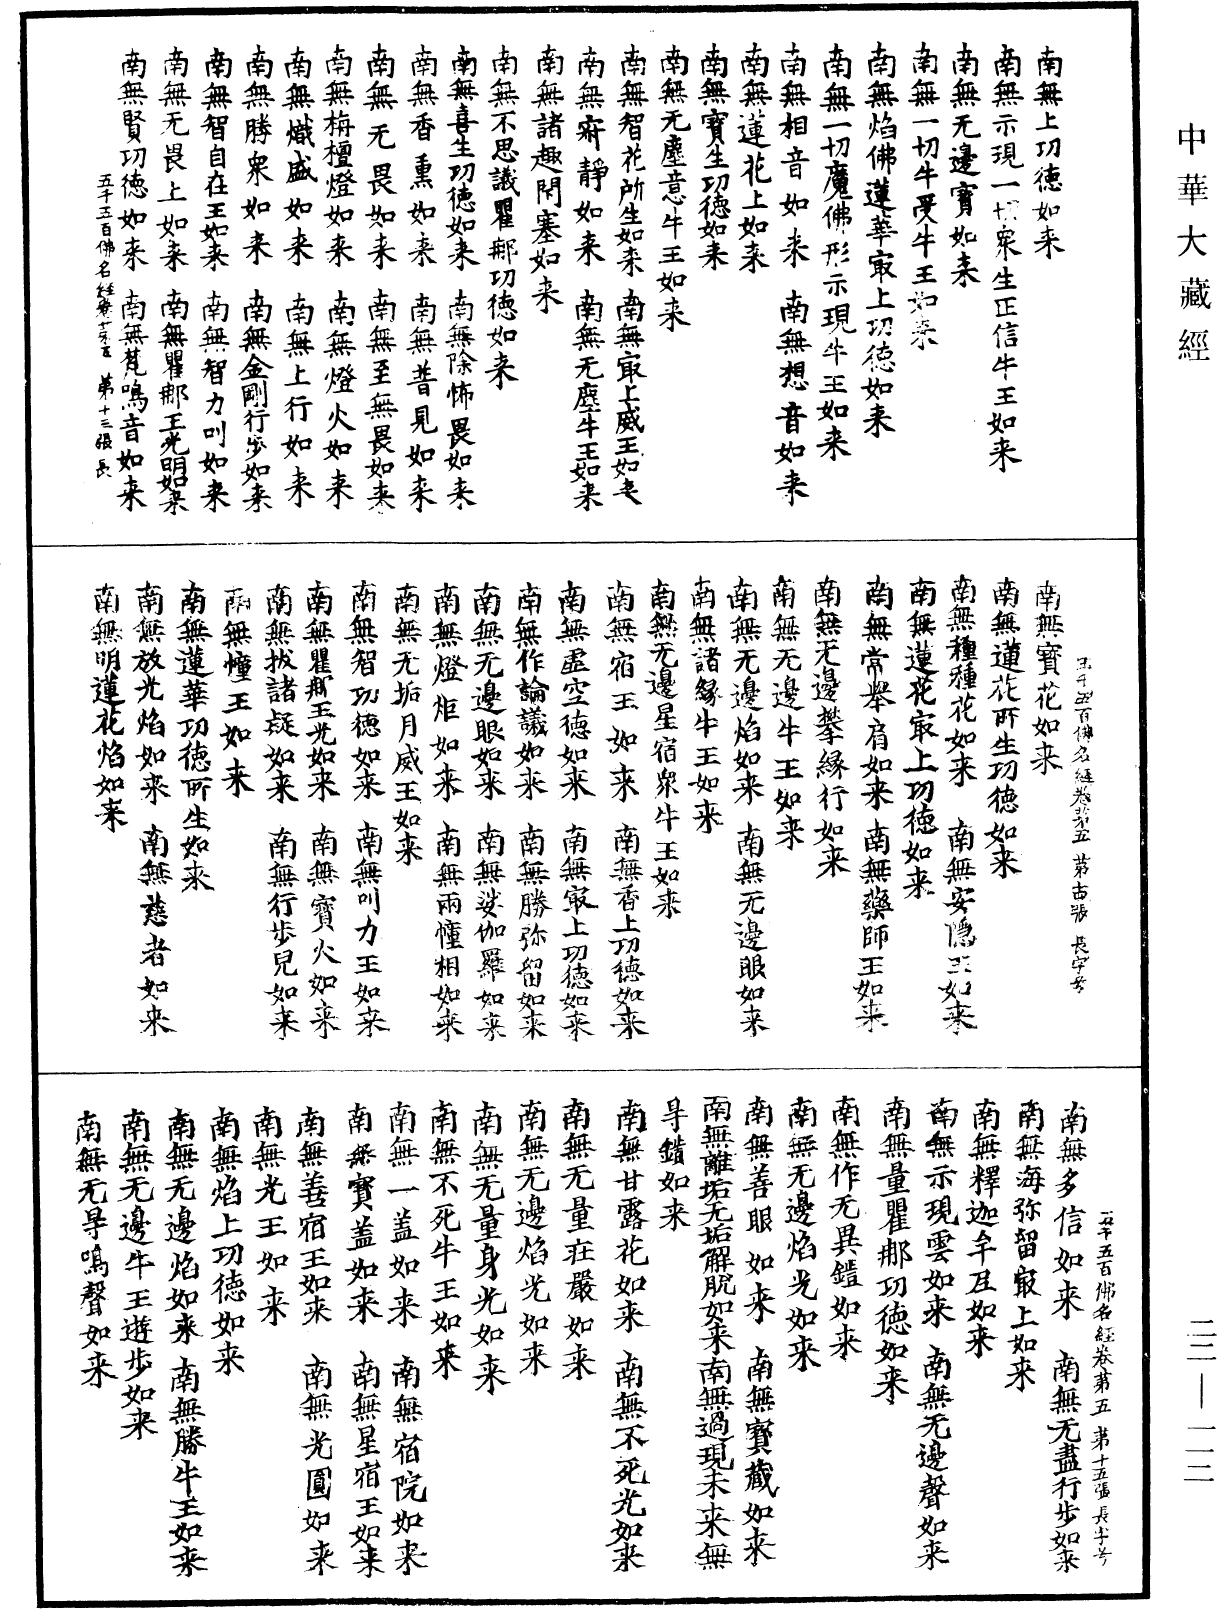 中華大藏經
南無上功德如来
南無示現一切衆生正信牛王如来
南無无邊寶如来
南無一切牛受牛王如来
南無焰佛蓮華㝡上功德如来
南無一切魔佛形示現牛王如来
南無相音如来 南無想音如来
南無蓮花上如来
南無寶生功德如来
南無无塵意牛王如来
南無智花所生如来 南無㝡上威王如来
南無寂静如来 南無无塵牛王如来
南無諸趣閇塞如来
南無不思議瞿那功德如来
南無喜生功德如来 南無除怖畏如来
南無香熏如来 南無普見如来
南無无畏如来 南無至無畏如来
南無栴檀燈如来 南無燈火如来
南無熾盛如来 南無上行如来
南無勝衆如来 南無金剛行步如来
南無智自在王如来 南無智力叫如来
南無无畏上如来 南無瞿那王光明如来
南無賢功德如来 南無梵鳴音如来
五千五百佛名經卷第五 第十三張 長
五千五百佛名經卷第五 第十四張 長字号
南無寶花如来
南無蓮花所生功德如来
南無種種花如来 南無安隱王如来
南無蓮花㝡上功德如来
南無常舉肩如来 南無藥師王如来
南無无邊攀緣行如来
南無无邊牛王如来
南無无邊焰如来 南無无邊眼如来
南無諸緣牛王如来
南無无邊星宿衆牛王如来
南無宿王如来 南無香上功德如来
南無虚空德如来 南無㝡上功德如来
南無作論議如来 南無勝弥留如来
南無无邊眼如来 南無娑伽羅如来
南無燈炬如来 南無雨幢相如来
南無无垢月威王如来
南無智功德如来 南無叫力王如来
南無瞿那王光如来 南無寶火如来
南無拔諸疑如来 南無行步兒如来
南無幢王如来
南無蓮華功德所生如来
南無放光焰如来 南無慈者如来
南無明蓮花焰如来
五千五百佛名經卷第五 第十五張 長字号
南無多信如来 南無无盡行步如来
南無海弥留㝡上如来
南無釋迦牟尼如来
南無示現雲如来 南無无邊聲如来
南無量瞿那功德如来
南無作无異鎧如来
南無无邊焰光如来
南無善眼如来 南無寶藏如来
南無離垢无垢解脱如来 南無過現未来無
㝵鎧如来
南無甘露花如来 南無不死光如来
南無无量莊嚴如来
南無无邊焰光如来
南無无量身光如来
南無不死牛王如来
南無一盖如来 南無宿院如来
南無寶盖如来 南無星宿王如来
南無善宿王如来 南無光圓如来
南無光王如来
南無焰上功德如来
南無无邊焰如来 南無勝牛王如来
南無无邊牛王遊步如来
南無无㝵鳴聲如来
二二—一一二